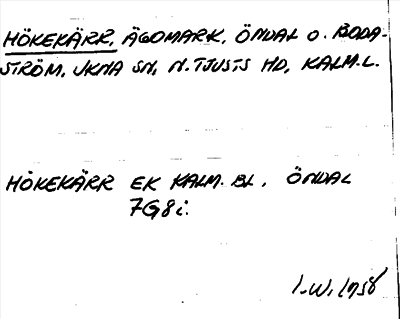 HÖKEKÄRR, ÄGOMARK, ÖNDAL O. BODA-
STRÖM, UKNA SN, N. TJUSTS HD, KALM.L.
HÖKEKÄRR EK KALM. BL. ÖNDAL
7G8i.
I.W. 1958